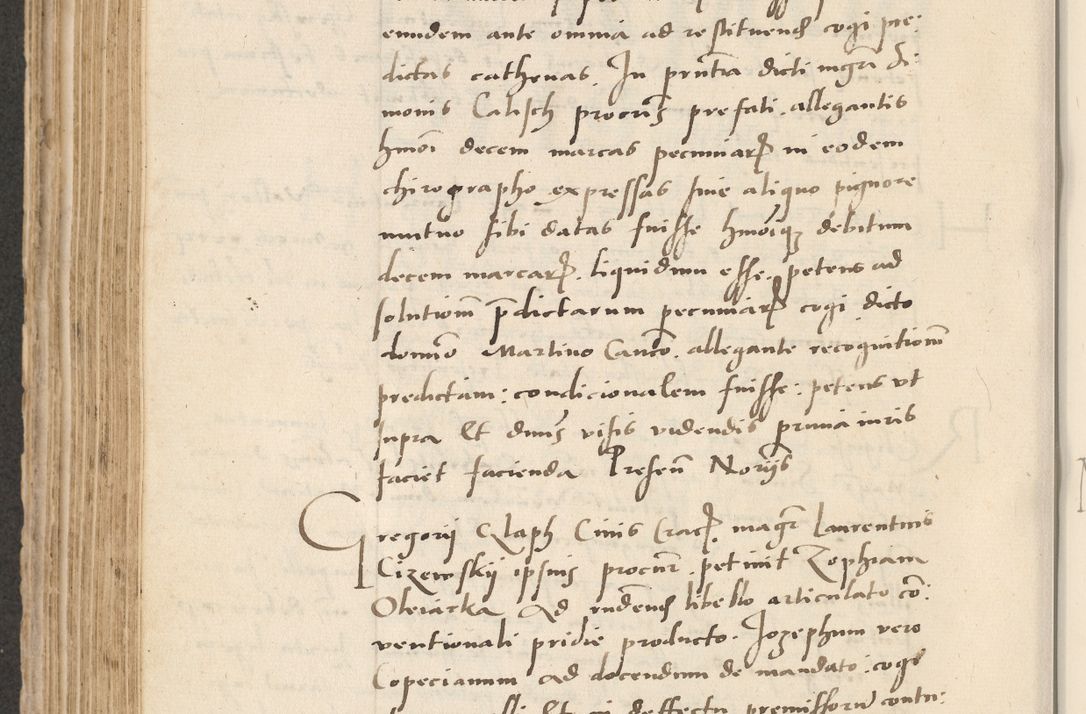 eundem ante omnia ad restituend cogi pre:
dictas cathenas. In pñtia dicti mgrã Si:
monis Calisch procris prefati. allegantis
hmõi decem marcas pecuniarꝝ in eodem
chirographo expressas sine aliquo pignore
mutuo sibi datas fuisse hmõiqꝫ debitum
decem marcarꝝ. liquidum esse. petens ad
solutionẽ p̃dictarum pecuniarꝝ cogi dicto
domĩo Martino Canco. allegante recognitionẽ
predictam: condicionalem fuisse: petens vt
supra Et dnus visis videndis prima iuris
faciet facienda Presen Norijs
Gregorij Claph Ciuis Cracꝝ. magr Laurentius
Cizewskij ipsius procur. petiuit Zophiam
Oleiarka Ad rndend libello articulato cõ:
ventionali pridie producto. Jozephum vero
Copecianum ad docendum de mandato. cogi
Et in deffectu premissoru contu: